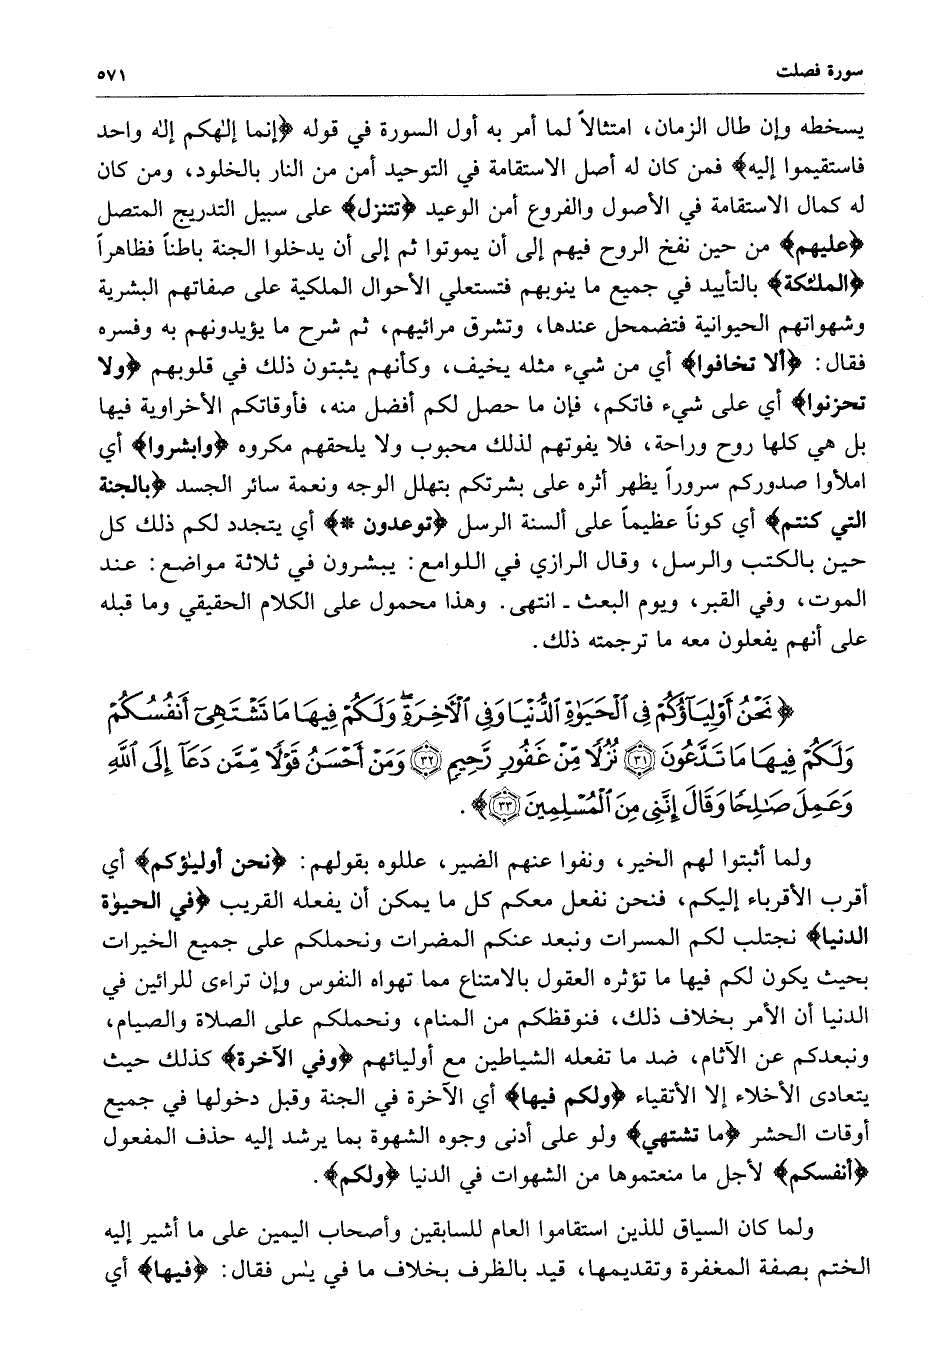 سورة فصلت ٥٧١
يسخطه وإن طال الزمان، امتثالاً لما أمر به أول السورة في قوله ﴿إنما إلٰهكم إلٰه واحد
فاستقيموا إليه﴾ فمن كان له أصل الاستقامة في التوحيد أمن من النار بالخلود، ومن كان
له كمال الاستقامة في الأصول والفروع أمن الوعيد ﴿تتنزل﴾ على سبيل التدريج المتصل
﴿عليهم﴾ من حين نفخ الروح فيهم إلى أن يموتوا ثم إلى أن يدخلوا الجنة باطناً فظاهراً
﴿الملٰئكة﴾ بالتأييد في جميع ما ينوبهم فتستعلي الأحوال الملكية على صفاتهم البشرية
وشهواتهم الحيوانية فتضمحل عندها، وتشرق مرائيهم، ثم شرح ما يؤيدونهم به وفسره
فقال: ﴿ألا تخافوا﴾ أي من شيء مثله يخيف، وكأنهم يثبتون ذلك في قلوبهم ﴿ولا
تحزنوا﴾ أي على شيء فاتكم، فإن ما حصل لكم أفضل منه، فأوقاتكم الأخراوية فيها
بل هي كلها روح وراحة، فلا يفوتهم لذلك محبوب ولا يلحقهم مكروه ﴿وابشروا﴾ أي
املأوا صدوركم سروراً يظهر أثره على بشرتكم بتهلل الوجه ونعمة سائر الجسد ﴿بالجنة
التي كنتم﴾ أي كوناً عظيماً على ألسنة الرسل ﴿توعدون *﴾ أي يتجدد لكم ذلك كل
حين بالكتب والرسل، وقال الرازي في اللوامع: يبشرون في ثلاثة مواضع: عند
الموت، وفي القبر، ويوم البعث ـ انتهى. وهذا محمول على الكلام الحقيقي وما قبله
على أنهم يفعلون معه ما ترجمته ذلك.
﴿ نَحْنُ أَوْلِيَآؤُكُمْ فِى ٱلْحَيَوٰةِ ٱلدُّنْيَا وَفِى ٱلْآخِرَةِۖ وَلَكُمْ فِيهَا مَا تَشْتَهِىٓ أَنفُسُكُمْ
وَلَكُمْ فِيهَا مَا تَدَّعُونَ ﴿٣١﴾ نُزُلًا مِّنْ غَفُورٍ رَّحِيمٍ ﴿٣٢﴾ وَمَنْ أَحْسَنُ قَوْلًا مِّمَّن دَعَآ إِلَى ٱللَّهِ
وَعَمِلَ صَـٰلِحًا وَقَالَ إِنَّنِى مِنَ ٱلْمُسْلِمِينَ ﴿٣٣﴾﴾.
ولما أثبتوا لهم الخير، ونفوا عنهم الضير، عللوه بقولهم: ﴿نحن أوليٰؤكم﴾ أي
أقرب الأقرباء إليكم، فنحن نفعل معكم كل ما يمكن أن يفعله القريب ﴿في الحيوٰة
الدنيا﴾ نجتلب لكم المسرات ونبعد عنكم المضرات ونحملكم على جميع الخيرات
بحيث يكون لكم فيها ما تؤثره العقول بالامتناع مما تهواه النفوس وإن تراءى للرائين في
الدنيا أن الأمر بخلاف ذلك، فنوقظكم من المنام، ونحملكم على الصلاة والصيام،
ونبعدكم عن الآثام، ضد ما تفعله الشياطين مع أوليائهم ﴿وفي الآخرة﴾ كذلك حيث
يتعادى الأخلاء إلا الأتقياء ﴿ولكم فيها﴾ أي الآخرة في الجنة وقبل دخولها في جميع
أوقات الحشر ﴿ما تشتهي﴾ ولو على أدنى وجوه الشهوة بما يرشد إليه حذف المفعول
﴿أنفسكم﴾ لأجل ما منعتموها من الشهوات في الدنيا ﴿ولكم﴾.
ولما كان السياق للذين استقاموا العام للسابقين وأصحاب اليمين على ما أشير إليه
الختم بصفة المغفرة وتقديمها، قيد بالظرف بخلاف ما في يٰس فقال: ﴿فيها﴾ أي